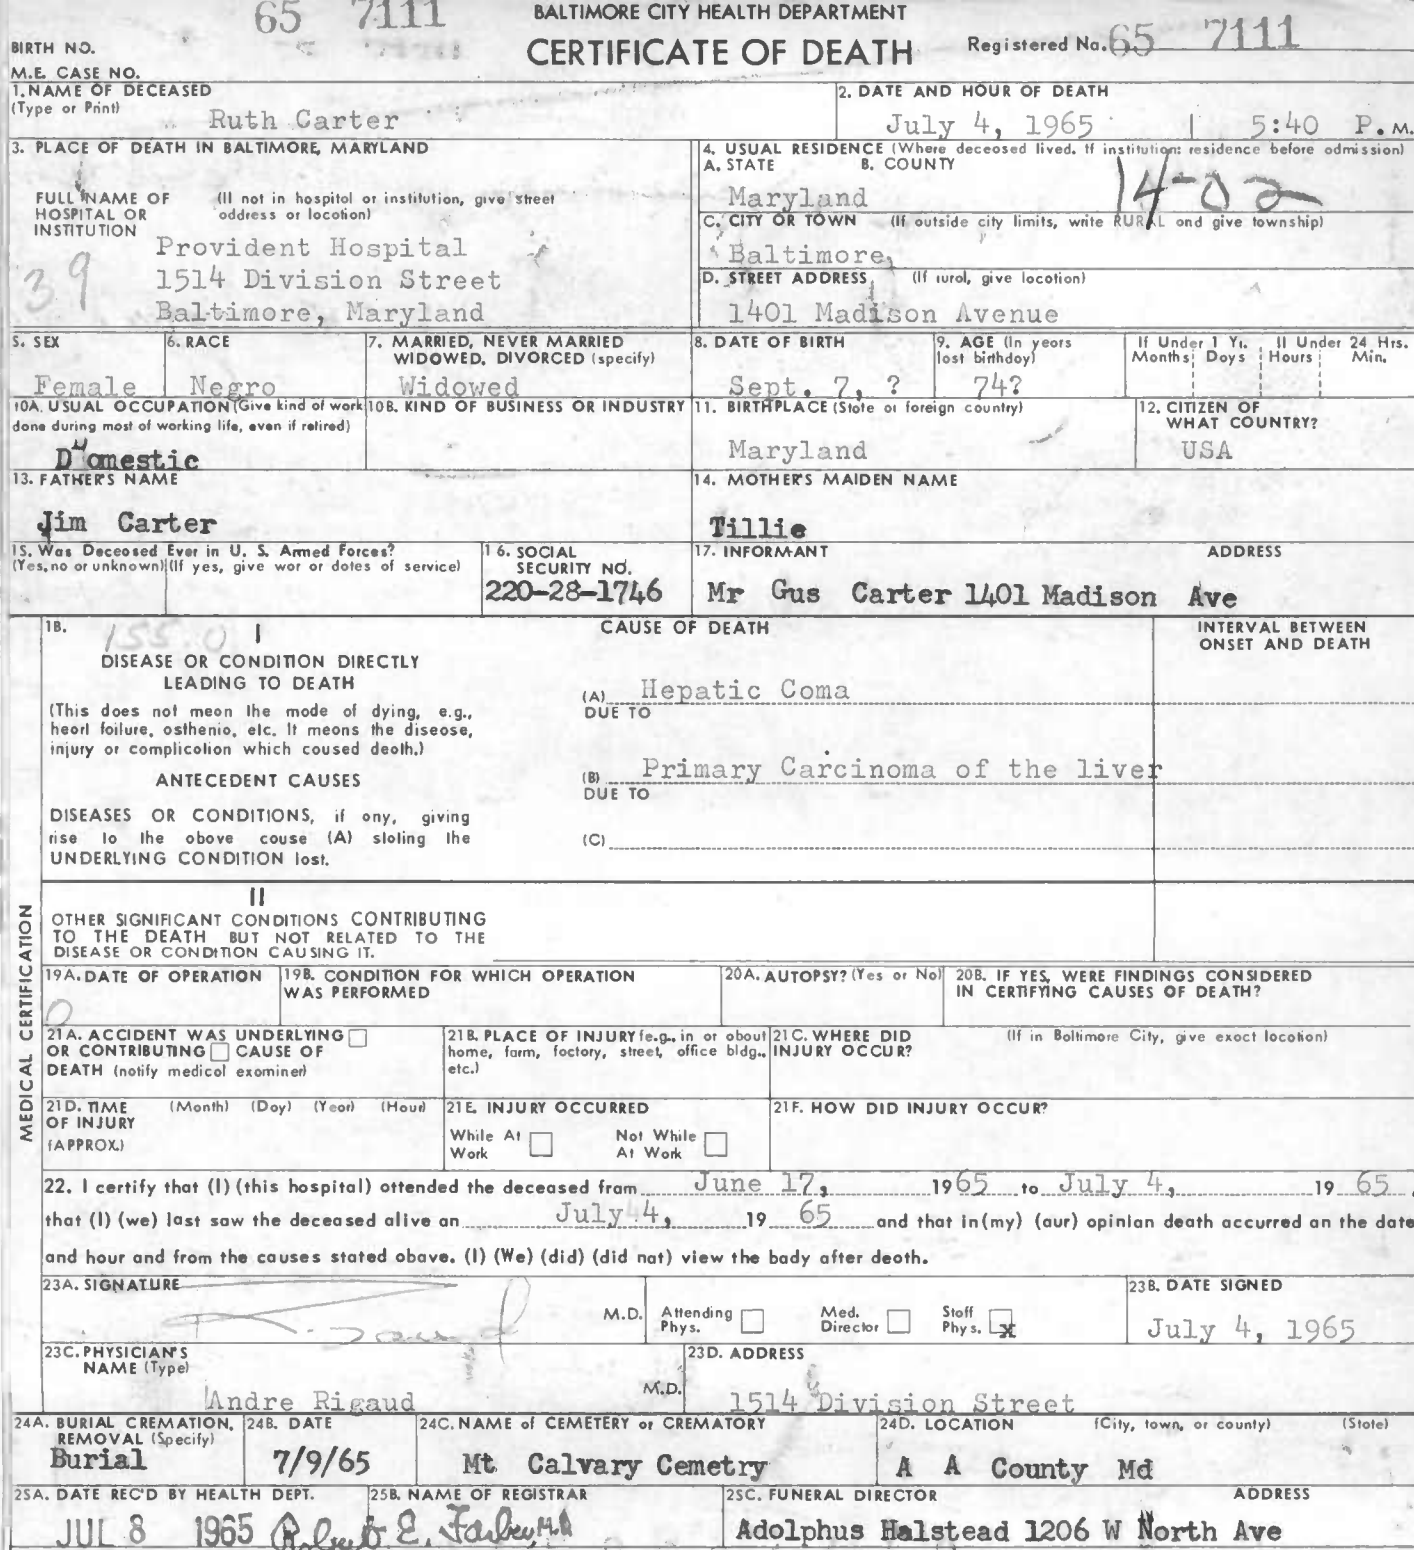 65 7111
BALTIMORE CITY HEALTH DEPARTMENT
BIRTH NO.
CERTIFICATE OF DEATH
Registered No. 65 7111
M.E. CASE NO.
1. NAME OF DECEASED
(Type or Print)
Ruth Carter
2. DATE AND HOUR OF DEATH
July 4, 1965 5:40 P. M.
3. PLACE OF DEATH IN BALTIMORE, MARYLAND
FULL NAME OF
HOSPITAL OR
INSTITUTION
(If not in hospital or institution, give street
address or location)
39
Provident Hospital
1514 Division Street
Baltimore, Maryland
4. USUAL RESIDENCE (Where deceased lived. If institution: residence before admission)
A. STATE B. COUNTY
Maryland
14-02
C. CITY OR TOWN (If outside city limits, write RURAL and give township)
Baltimore,
D. STREET ADDRESS (If rural, give location)
1401 Madison Avenue
5. SEX
Female
6. RACE
Negro
7. MARRIED, NEVER MARRIED
WIDOWED, DIVORCED (specify)
Widowed
8. DATE OF BIRTH
Sept. 7, ?
9. AGE (In years
last birthday)
74?
If Under 1 Yr.
Months Days
If Under 24 Hrs.
Hours Min.
10A. USUAL OCCUPATION (Give kind of work
done during most of working life, even if retired)
Domestic
10B. KIND OF BUSINESS OR INDUSTRY
11. BIRTHPLACE (State or foreign country)
Maryland
12. CITIZEN OF
WHAT COUNTRY?
USA
13. FATHER'S NAME
Jim Carter
14. MOTHER'S MAIDEN NAME
Tillie
15. Was Deceased Ever in U. S. Armed Forces?
(Yes, no or unknown) (If yes, give war or dates of service)
16. SOCIAL
SECURITY NO.
220-28-1746
17. INFORMANT ADDRESS
Mr Gus Carter 1401 Madison Ave
18. 155.0
I
DISEASE OR CONDITION DIRECTLY
LEADING TO DEATH
(This does not mean the mode of dying, e.g.,
heart failure, asthenia, etc. It means the disease,
injury or complication which caused death.)
ANTECEDENT CAUSES
DISEASES OR CONDITIONS, if any, giving
rise to the above cause (A) stating the
UNDERLYING CONDITION last.
CAUSE OF DEATH
(A) Hepatic Coma
DUE TO
(B) Primary Carcinoma of the liver
DUE TO
(C)
INTERVAL BETWEEN
ONSET AND DEATH
II
OTHER SIGNIFICANT CONDITIONS CONTRIBUTING
TO THE DEATH BUT NOT RELATED TO THE
DISEASE OR CONDITION CAUSING IT.
MEDICAL CERTIFICATION
19A. DATE OF OPERATION
0
19B. CONDITION FOR WHICH OPERATION
WAS PERFORMED
20A. AUTOPSY? (Yes or No)
20B. IF YES, WERE FINDINGS CONSIDERED
IN CERTIFYING CAUSES OF DEATH?
21A. ACCIDENT WAS UNDERLYING
OR CONTRIBUTING CAUSE OF
DEATH (notify medical examiner)
21B. PLACE OF INJURY (e.g., in or about
home, farm, factory, street, office bldg.,
etc.)
21C. WHERE DID
INJURY OCCUR?
(If in Baltimore City, give exact location)
21D. TIME (Month) (Day) (Year) (Hour)
OF INJURY
(APPROX.)
21E. INJURY OCCURRED
While At
Work
Not While
At Work
21F. HOW DID INJURY OCCUR?
22. I certify that (I) (this hospital) attended the deceased from June 17, 1965 to July 4, 19 65,
that (I) (we) last saw the deceased alive on July 4, 19 65 and that in (my) (our) opinion death occurred on the date
and hour and from the causes stated above. (I) (We) (did) (did not) view the body after death.
23A. SIGNATURE
M.D.
Attending
Phys.
Med.
Director
Staff
Phys. x
23B. DATE SIGNED
July 4, 1965
23C. PHYSICIAN'S
NAME (Type)
Andre Rigaud
M.D.
23D. ADDRESS
1514 Division Street
24A. BURIAL CREMATION,
REMOVAL (Specify)
Burial
24B. DATE
7/9/65
24C. NAME of CEMETERY or CREMATORY
Mt Calvary Cemetry
24D. LOCATION (City, town, or county) (State)
A A County Md
25A. DATE REC'D BY HEALTH DEPT.
JUL 8 1965
25B. NAME OF REGISTRAR
Robert E. Farber, M.D.
25C. FUNERAL DIRECTOR ADDRESS
Adolphus Halstead 1206 W North Ave